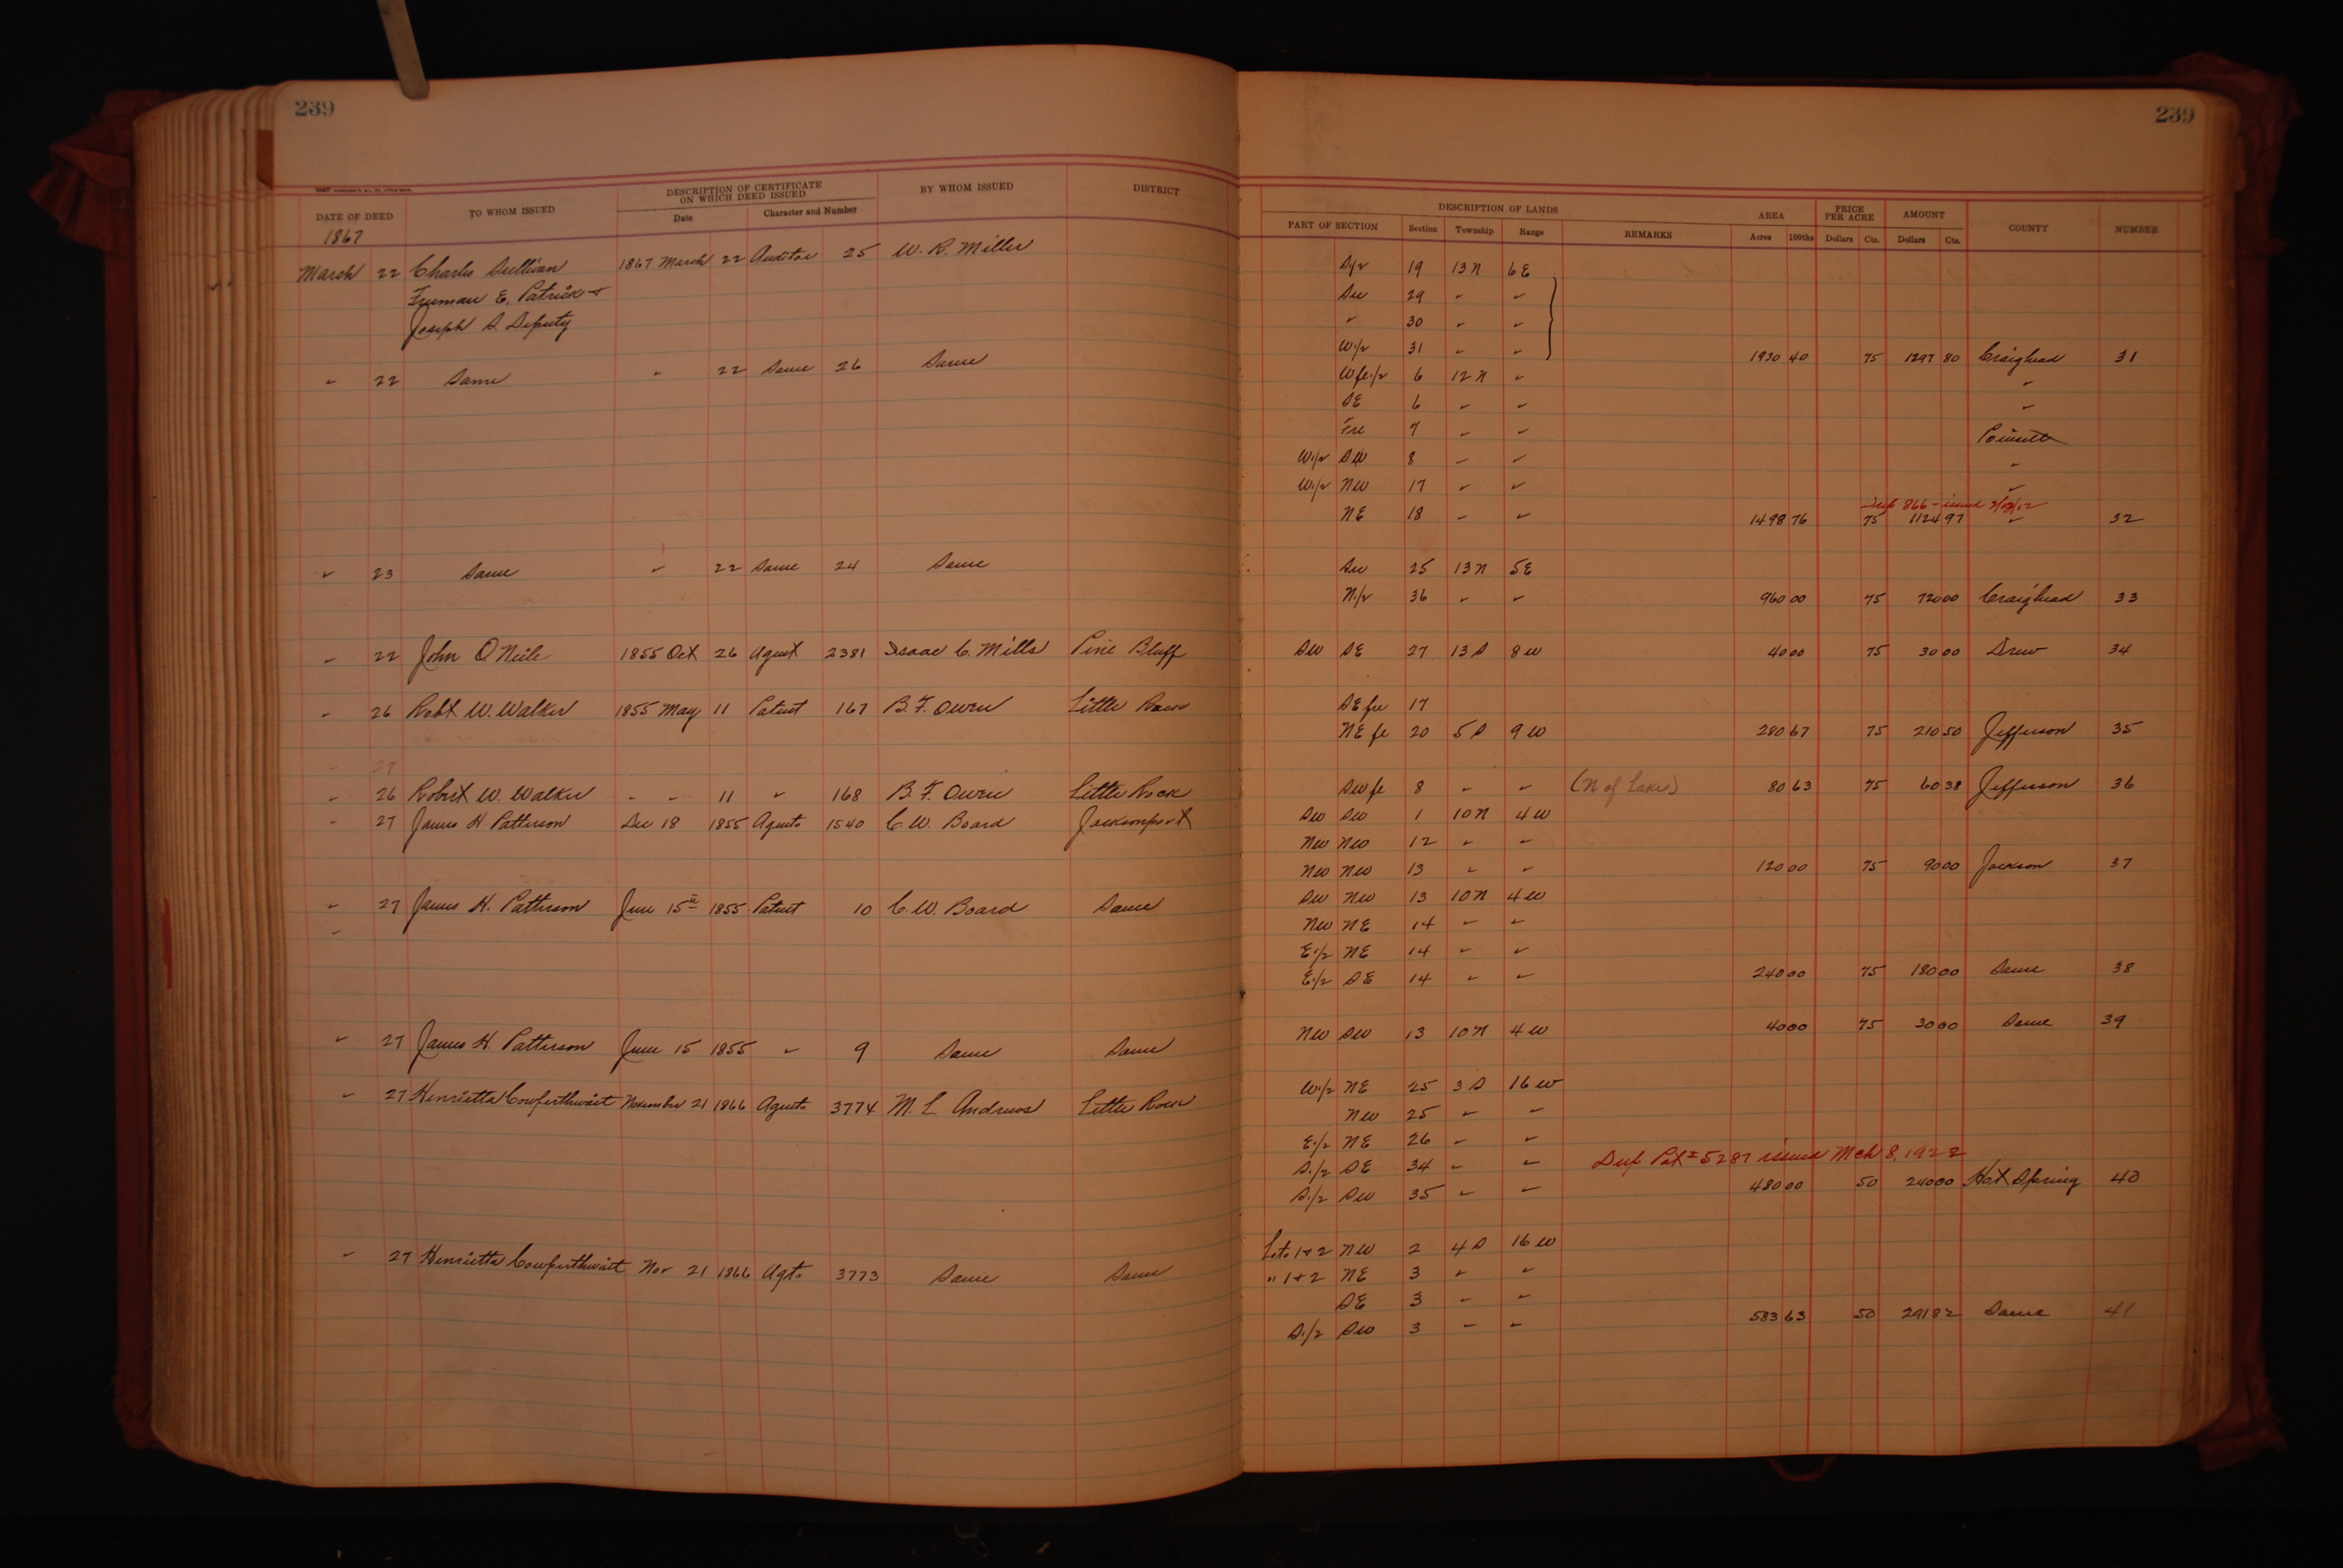 239 239
DATE OF DEED TO WHOM ISSUED DESCRIPTION OF CERTIFICATE ON WHICH DEED ISSUED BY WHOM ISSUED DISTRICT DESCRIPTION OF LANDS AREA PRICE PER ACRE AMOUNT COUNTY NUMBER
Date Character and Number PART OF SECTION Section Township Range REMARKS Acres 100ths Dollars Cts. Dollars Cts.
1867
March 22 Charles Sullivan 1867 March 22 Auditor 25 W. R. Miller S/2 19 13 N 6 E
Truman E. Patrick + SW 29 " "
Joseph S. Deputy " 30 " "
W1/2 31 " " 1930 40 75 1297 80 Craighead 31
" 22 Same " 22 Same 26 Same W fr 1/2 6 12 N " "
SE 6 " " "
Fre 7 " " Poinsett
W1/2 SW 8 " " "
W1/2 NW 17 " " "
Dup 866 - issued
NE 18 " " 1498 76 75 1124 97 " 32
" 23 Same " 22 Same 24 Same SW 25 13 N 5 E
N1/2 36 " " 960 00 75 720 00 Craighead 33
" 22 John O Neile 1855 Oct 26 Agent 2381 Isaac C. Mills Pine Bluff SW SE 27 13 S 8 W 40 00 75 30 00 Drew 34
" 26 Robt W. Walker 1855 May 11 Patent 167 B. F. Owen Little Rock SE fre 17
NE fr 20 5 S 9 W 280 67 75 210 50 Jefferson 35
" 27
" 26 Robert W. Walker " " 11 " 168 B. F. Owen Little Rock SW fr 8 " " (N of Lake) 80 63 75 60 38 Jefferson 36
" 27 James H. Patterson Dec 18 1855 Agents 1540 C. W. Board Jacksonport SW SW 1 10 N 4 W
NW NW 12 " "
NW NW 13 " " 120 00 75 90 00 Jackson 37
" 27 James H. Patterson June 15th 1855 Patent 10 C. W. Board Same SW NW 13 10 N 4 W
" NW NE 14 " "
E1/2 NE 14 " "
E1/2 SE 14 " " 240 00 75 180 00 Same 38
" 27 James H. Patterson June 15 1855 " 9 Same Same NW SW 13 10 N 4 W 40 00 75 30 00 Same 39
" 27 Henrietta Cowperthwait November 21 1866 Agents 3774 M. L Andrews Little Rock W1/2 NE 25 3 S 16 W
NW 25 " "
E1/2 NE 26 " "
S1/2 SE 34 " " Dup Pat # 5287 issued Mch 8, 1922
S1/2 SW 35 " " 480 00 50 240 00 Hot Spring 40
" 27 Henrietta Cowperthwait Nov 21 1866 Agts 3773 Same Same Lots 1+2 NW 2 4 S 16 W
" 1+2 NE 3 " "
SE 3 " "
S1/2 SW 3 " " 583 63 50 291 82 Same 41